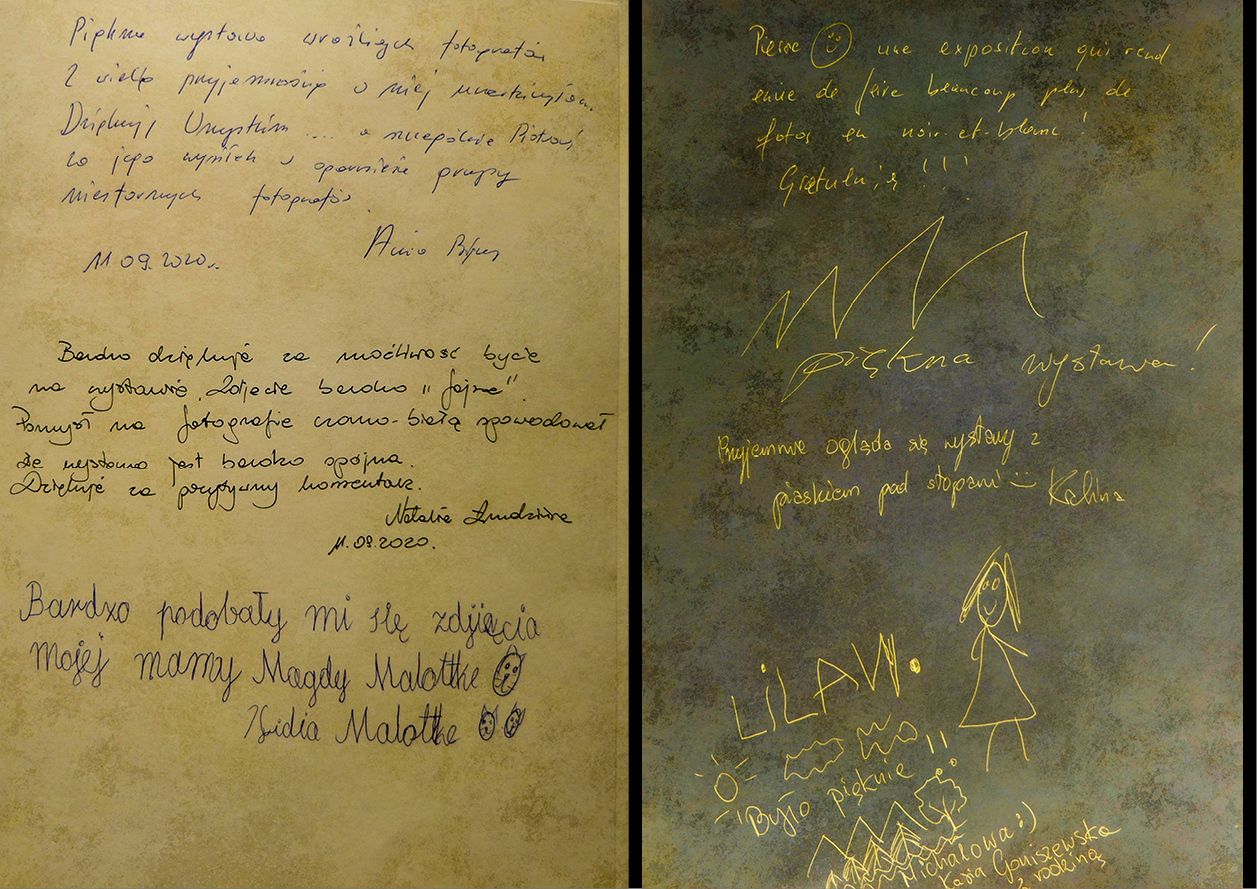 Piękna wystawa wrażliwych fotografów
Z wielką przyjemnością w niej uczestniczyłam.
Dziękuję Wszystkim .... a szczególnie Piotrowi,
za jego wysiłek w grupy
niesfornych fotografów.
11.09.2020r. Anna
Bardzo dziękuję za możliwość bycia
na wystawie. Zdjęcia bardzo "fajne".
Pomysł na fotografie czarno-białą spowodował
że wystawa jest bardzo spójna.
Dziękuję za przypływny komentarz.
Natalia
11.09.2020.
Bardzo podobały mi się zdjięcia
mojej mamy Magdy Malottke
Lidia Malottke
une exposition qui rend
envie de faire beaucoup plus de
fotos en noir-et-blanc!
Gratuluję!!!
piękna wystawa!
Przyjemnie ogląda się wystawy z
piaskiem pod stopami Kalina
LiLAW.
Było pięknie!!
Michałowa :)
Kasia Goniszewska
z rodziną